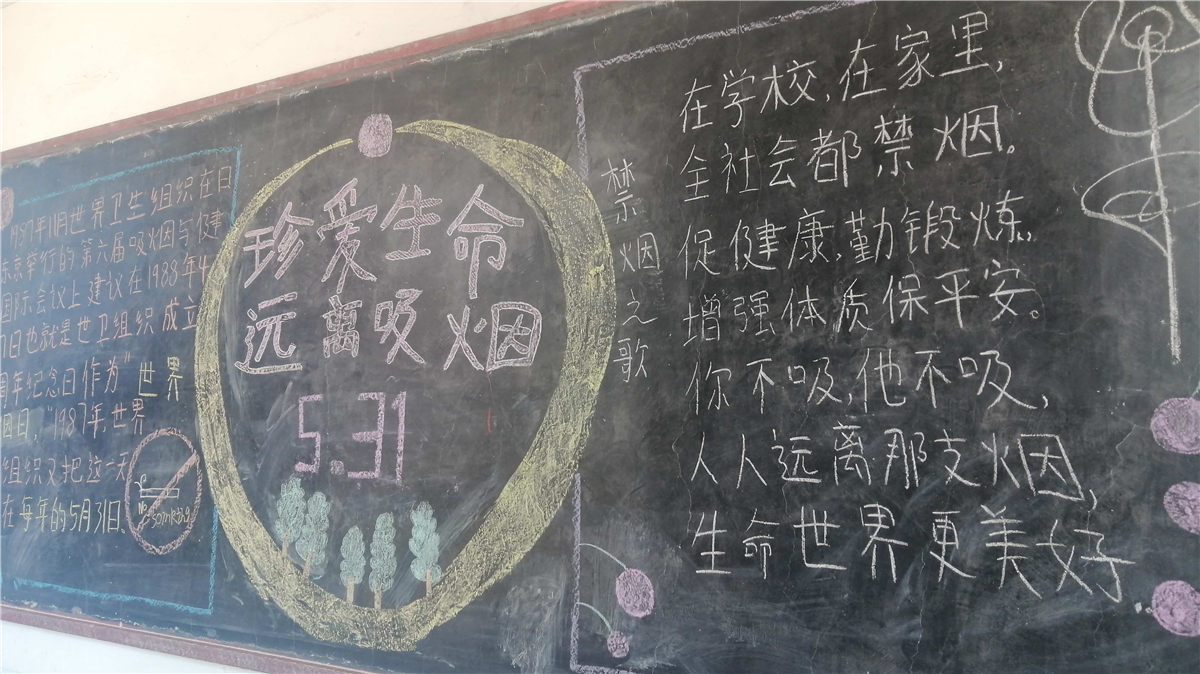 1987年11月世界卫生组织在日
东京举行的第六届吸烟与健
国际会议上建议在1988年4
7日也就是世卫组织成立
周年纪念日作为"世界
烟日,"1987年,世界
组织又把这一天
在每年的5月31日。
No
珍爱生命
远离吸烟
5.31
禁烟之歌
在学校,在家里,
全社会都禁烟。
促健康,勤锻炼,
增强体质保平安。
你不吸,他不吸,
人人远离那支烟,
生命世界更美好.